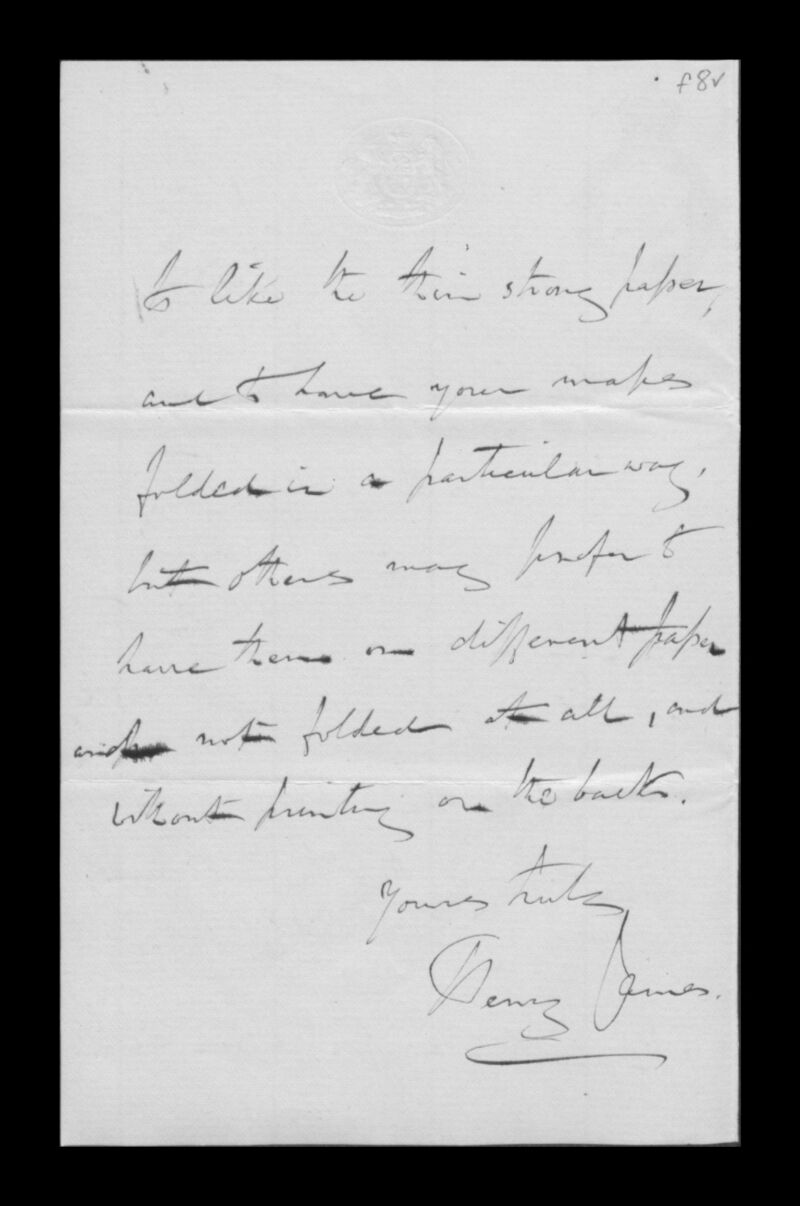 f8v
to like the thin strong paper,
and to have your mapes
folded in a particular way,
but others may prefer to
have them on different paper
and not folded at all, and
without printing on the backs.
Yours truly
Henry James.